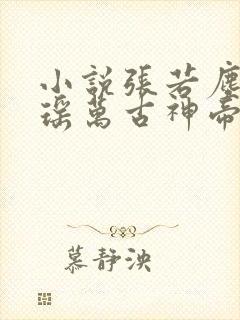 小説張若塵
瑤萬古神帝
慕静泱